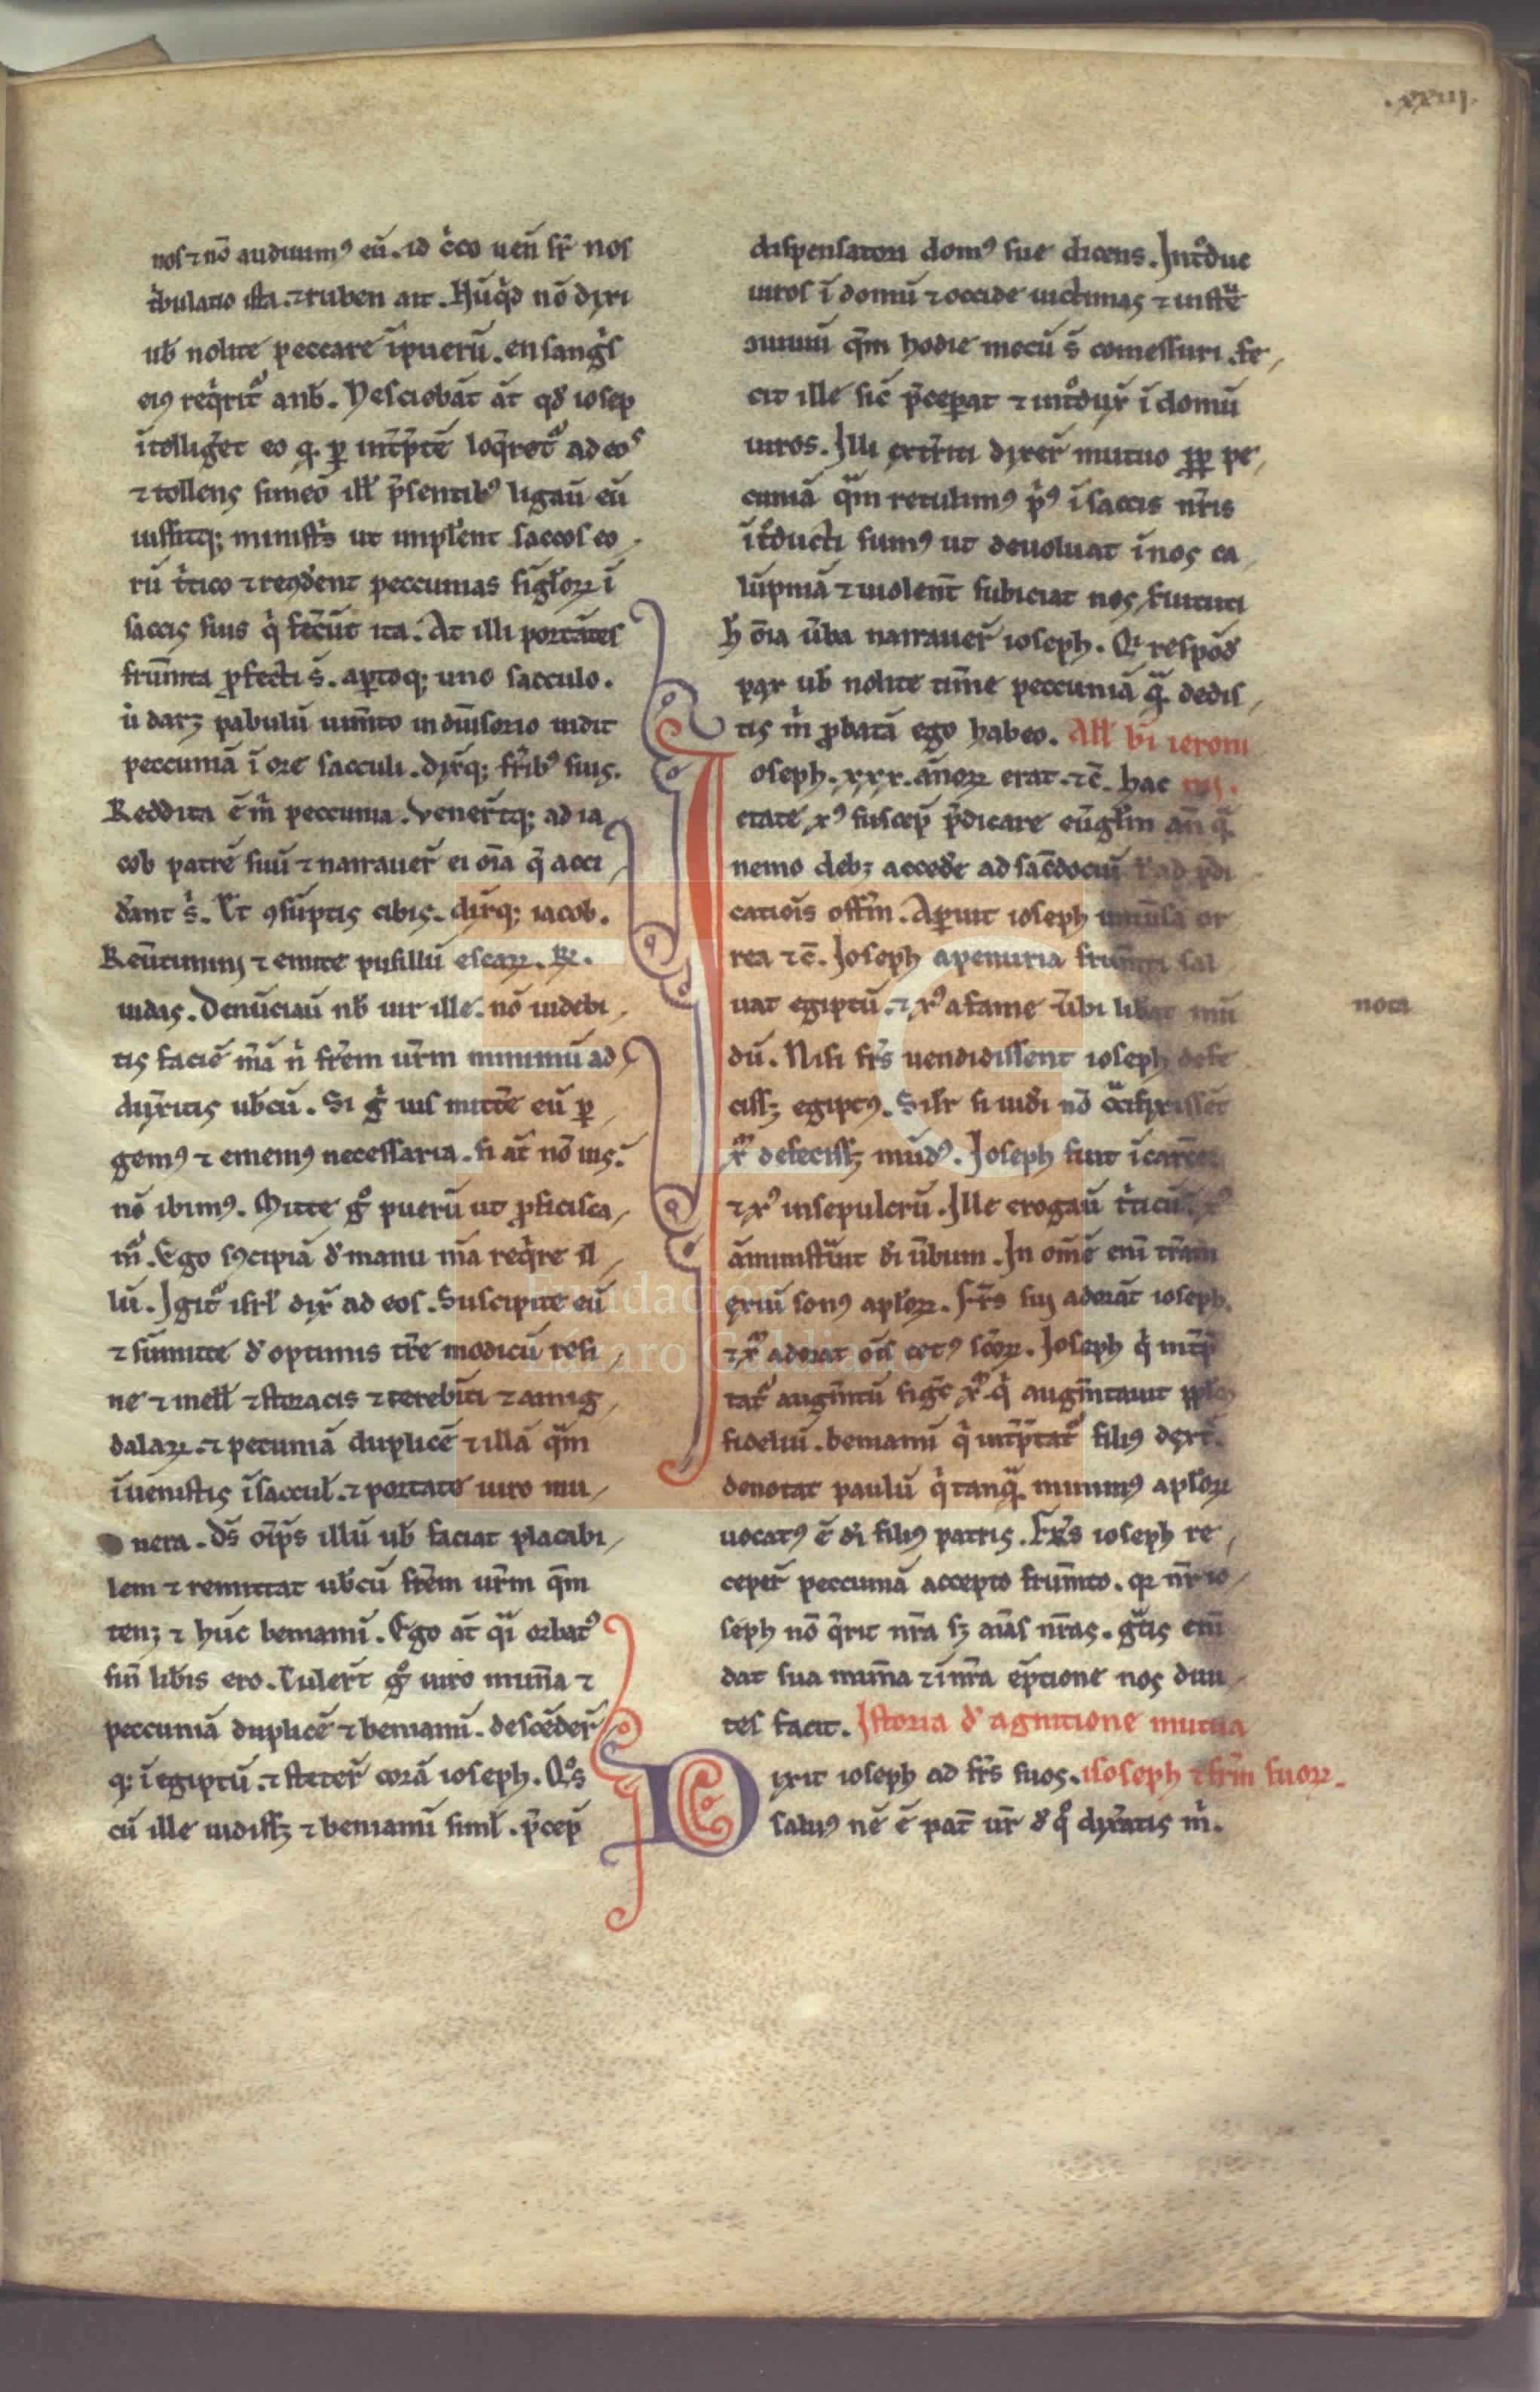 .xxiij.
nos ⁊ nō audiuimꝰ eū. id c̓co ueń sr̄ nos
t̓bulatio ista. ⁊ ruben ait. Nūq̓d nō dixi
ub̄ nolite peccare ī puerū. en sang̓s
eiꝯ req̓rit᷑ a nb̄. Nesciebāt āt qd̓ iosep
ītelliḡet eo q. ꝑ int̓p̄tē loq̄ret᷑ ad eos
⁊ tollens simeō ill̄ p̄sentibꝰ ligaū eū
iussitq; minist̓s ut impleꝛent saccos eo
rū t̓tico ⁊ reꝯd̓ent peccunias sīgl̓oꝝ ī
saccis suis q̓ fec̄ūt ita. At illi portātes
frūmta ꝓfecti s̄. aꝑtoq; uno sacculo.
ut̓ darꝫ pabulū iumto in diu̓sorio uidit
peccuniā ī ore sacculi. dix̄q; fr̄ibꝰ suis.
Reddita ē m̓ peccunia. Vener̄tq; ad ia
cob patrē suū ⁊ narrauer̄ ei oīa q̄ acci
d̓ant s̓. Et ꝯsūptis cibis. dix̄q; iacob.
Reūtimini ⁊ emite pusillū escaꝝ. R̄.
iudas. Denūciaū nb̄ uir ille. nō uidebi
tis faciē mēā n̓ fr̄em ur̄m minimū ad
duxitis ub̄cū. Si g̓ uis mitte eū ꝑ
gemꝰ ⁊ ememꝰ necessaria. si āt nō uis.
nō ibimꝰ. Mitte gͦ puerū ut ꝓficisca
m᷑. Ego sꝯcipiā d̓ manu mēa req̓re il
lū. Igit᷑ isrl̄ dix̄ ad eos. Suscipite eū
⁊ sumite d̓ optimis tr̄e modicū resi
ne ⁊ mell̄ ⁊ storacis ⁊ terebīti ⁊ amig
dalaꝝ. ⁊ pecuniā duplicē ⁊ illā q̄m
īuenistis ī saccul̄. ⁊ portate uiro mu
nera. ds̄ oīps illū ub̄ faciat placabi
lem ⁊ remittat ub̄cū fr̄em ur̄m q̄m
tenꝫ ⁊ hūc beniamī. Ego āt q̄i orbatꝰ
sin̄ lib̄is ero. Tuler̄t gͦ uiro mun̄a ⁊
peccuniā duplicē ⁊ beniamī. descēder̄
q; ī egiptū. ⁊ steter̄ corā ioseph. Qͦs
cū ille uidissꝫ ⁊ beniamī siml̄. p̄cep̄
dispensatori domꝰ sue dicens. Int̓duc
uiros ī domū ⁊ occide uictimas ⁊ instrē
q̄m hodie mecū s̄ comessuri. fe
cit ille sic̄ p̄ceꝑat ⁊ int̓dux̄ ī domū
uiros. Illi ext̄riti dixer̄ mutuo ꝓp pe
cuniā q̄m retulimꝰ p̓ꝰ ī saccis nr̄is
īt̓ducti sumꝰ ut deuoluat ī nos ca
lūpniā ⁊ uiolent̄ subiciat nos s̓uituti
h̄ oīa ūba narrauer̄ ioseph. Q̓ respōd̓
pax ub̄ nolite timē peccuniā q̄ dedis
tis m̓ ꝓbatā ego habeo. All̄ bī ieroni
oseph. xxx. annoꝝ erat. ⁊c̄. hac mi.
etate xꝰ suscep̄ p̄dicare eūgl̄m an̄ q̄
nemo debꝫ acced̓e ad sac̄dociū l̄ ad p̄di
catiōis offm̄. Aꝑuit ioseph uniūsa or
rea ⁊c̄. Ioseph a penuria frum̄ti sal
uat egiptū. ⁊ xꝰ a fame ūbi lib̓at mū
dū. Nisi fr̄s uendidissent ioseph defe
cissꝫ egiptꝰ. Silr̄ si iud̓i nō c̓cifixissēt
xᵐ defecissꝫ mūdꝰ. Ioseph fuit ī carcē
⁊ xꝰ in sepulcrū. Ille erogaū t̓ticū. xꝰ
āministūit d̓i ūbum. In omē enī tr̄am
exiuī sonꝰ apl̓oꝝ. Fr̄s sui adorāt ioseph.
⁊ xᵐ adorat oīs cetꝰ sc̄oꝝ. Ioseph q̓ int̓p̄
tat᷑ augm̄tū sigt̄ xᵐ q̓ augm̄tauit
fideliū. beniamī q̓ int̓p̄tat᷑ filiꝰ dext̄.
denotat paulū q̓ tanq̄ minimꝰ apl̓oꝝ
uocatꝰ ē d̓i filiꝰ patris. Fr̄s ioseph re
ceper̄ peccuniā accepto frum̄to. qꝛ nr̄ io
seph nō q̓rit nr̄a sꝫ aīas nr̄as. g̓tis enī
dat sua mun̄a ⁊ ī nr̄a ep̄tione nos diui
tes facit. Istoria d̓ agnitione mutua
ixit ioseph ad fr̄s suos. ioseph ⁊ fr̄m suoꝝ.
saluꝰ nē ē pat̄ ur̄ d̓ qͦ dix̄atis m̓.
nota
Fundación
Lázaro Galdiano